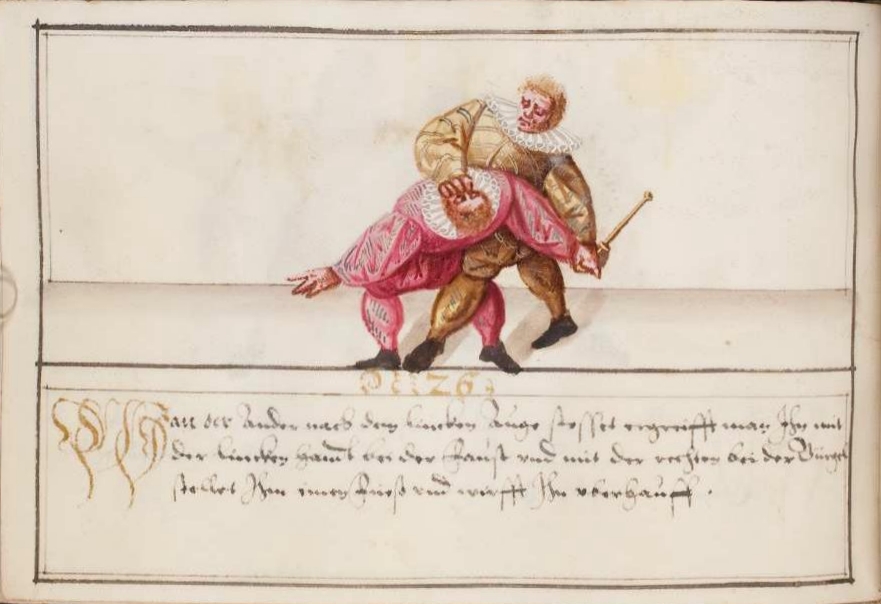 N: 26
Wan der Ander nach dem lincken Auge stosset ergreifft man Ihn mit
der lincken handt bei der Faust vnd mit der rechten bei der Gurgel
stellet Ihm einen Fuess vnd wirfft Ihn vberhauff.